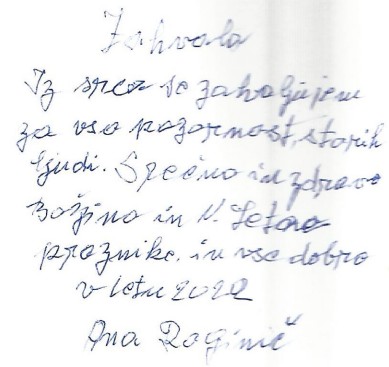 Zahvala
Iz srca se zahaljujem
za vso pozornost, starih
ljudi. Srečno in zdravo
Božično in N. Letno
praznike. in vse dobro
v letu 2022
Ana Roginič